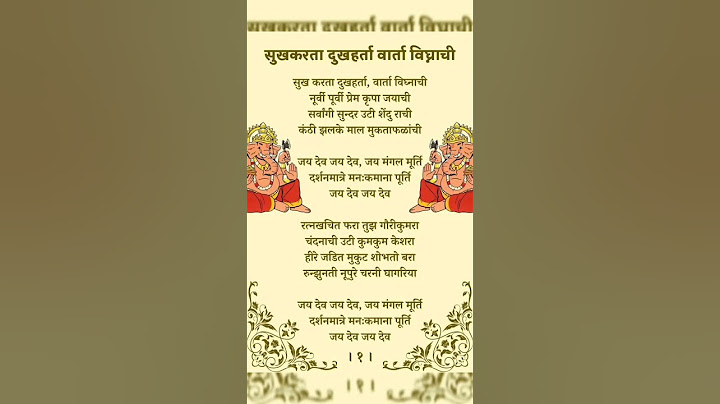 सुखकरता दुखहर्ता वार्ता विघ्नाची
सुखकरता दुखहर्ता वार्ता विघ्नाची
सुख करता दुखहर्ता, वार्ता विघ्नाची
नूर्वी पूर्वी प्रेम कृपा जयाची
सर्वांगी सुन्दर उटी शेंदु राची
कंठी झलके माल मुकताफळांची
जय देव जय देव, जय मंगल मूर्ति
दर्शनमात्रे मनःकमाना पूर्ति
जय देव जय देव
रत्नखचित फरा तुझ गौरीकुमरा
चंदनाची उटी कुमकुम केशरा
हीरे जडित मुकुट शोभतो बरा
रुन्झुनती नूपुरे चरनी घागरिया
जय देव जय देव, जय मंगल मूर्ति
दर्शनमात्रे मनःकमाना पूर्ति
जय देव जय देव
। १ ।
। १ ।